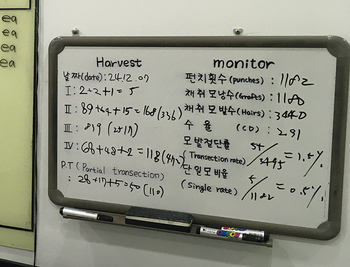 ea
ea
ea
ea
Harvest
monitor
날짜(date) : 24.12.07
펀치횟수(punches) : 1182
I : 2+2+1=5
채취 모낭수(Grafts) : 1180
II : 89+64+15=168(336)
채취 모발수(Hairs) : 3440
III : 819
수 율 (CD) : 2.91
IV : 68+48+2=118(472)
모발절단률 54
(Transection rate) 3495 = 1.5%
P.T (Partial transection)
단일모비율 4
: 28+17+5=50(110)
(Single rate) 1182 = 0.5%